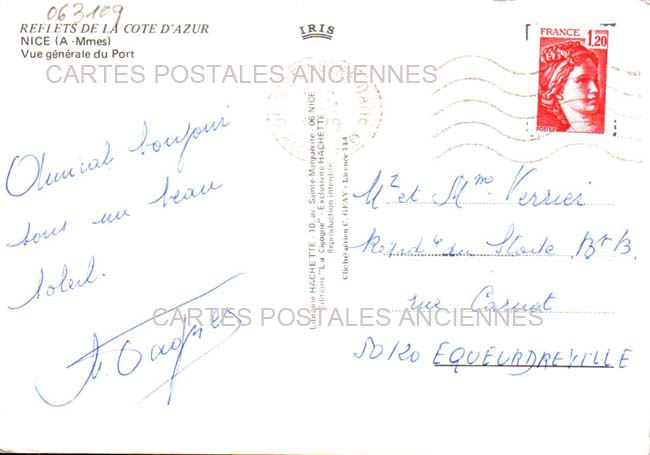 063109
REFLETS DE LA COTE D'AZUR
NICE (A.-Mmes)
Vue générale du Port
IRIS
FRANCE
1,20
POSTES
CARTES POSTALES ANCIENNES
Amical bonjour
sous un beau
soleil.
Librairie HACHETTE - 10, av. Sainte-Marguerite - 06 NICE
Editions "La Cigogne" - Exclusivité HACHETTE
Reproduction interdite
Cliché aérien C. GEAY - Licence 114
Mr et Mme Verrier
Résidce du Stade Bt B.
rue Carnot
50120 EQUEURDREVILLE
CARTES POSTALES ANCIENNES